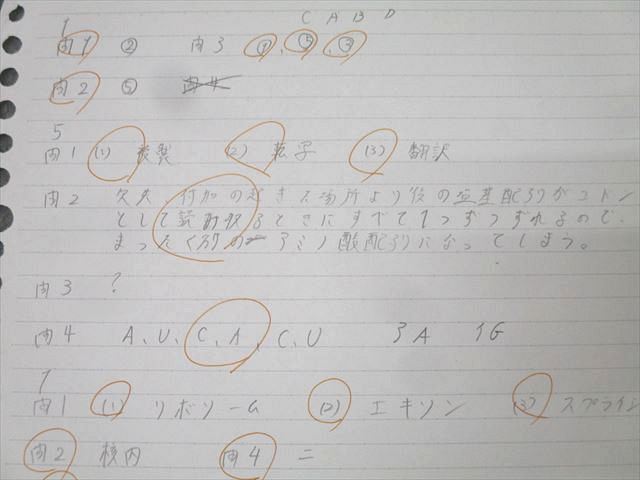 C A B D
1
問1 ② 問3 ④、⑤ ③
問2 ⑤
5
問1 (1) 複製 (2) 転写 (3) 翻訳
問2 欠失、付加の起きた場所より後の塩基配列がコドン
として読み取るときにすべて1つずつずれるので、
まったく別の アミノ酸配列になってしまう。
問3 ?
問4 A、U、C、A、C、U ヨA イG
7
問1 (1) リボソーム (2) エキソン (3) スプライシ
問2 核内 問4 ニ